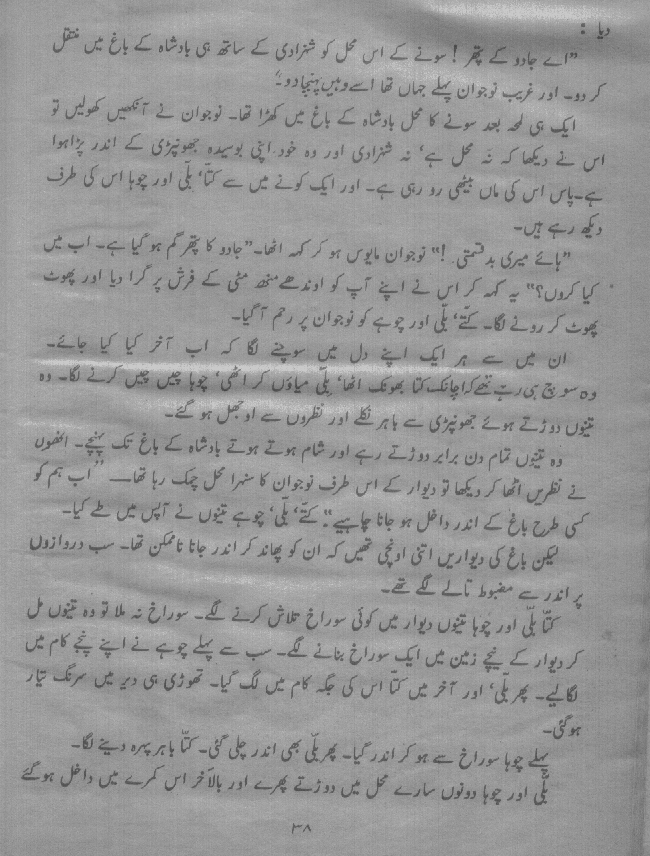 دیا :
”اے جادو کے پتھر ! سونے کے اس محل کو شہزادی کے ساتھ ہی بادشاہ کے باغ میں منتقل
کر دو۔ اور غریب نوجوان پہلے جہاں تھا اسے وہیں پہنچا دو۔“
ایک ہی لمحہ بعد سونے کا محل بادشاہ کے باغ میں کھڑا تھا۔ نوجوان نے آنکھیں کھولیں تو
اس نے دیکھا کہ نہ محل ہے‘ نہ شہزادی اور وہ خود اپنی بوسیدہ جھونپڑی کے اندر پڑا ہوا
ہے۔ پاس اس کی ماں بیٹھی رو رہی ہے۔ اور ایک کونے میں سے کتا‘ بلّی اور چوہا اس کی طرف
دیکھ رہے ہیں۔
”ہائے میری بدقسمتی !“ نوجوان مایوس ہو کر کہہ اٹھا۔ ”جادو کا پتھر گم ہو گیا ہے۔ اب میں
کیا کروں؟“ یہ کہہ کر اس نے اپنے آپ کو اوندھے منھ مٹی کے فرش پر گرا دیا اور پھوٹ
پھوٹ کر رونے لگا۔ کتّے‘ بلّی اور چوہے کو نوجوان پر رحم آگیا۔
ان میں سے ہر ایک اپنے دل میں سوچنے لگا کہ اب آخر کیا کیا جائے۔
وہ سوچ ہی رہے تھے کہ اچانک کتا بھونک اٹھا‘ بلّی میاؤں کر اٹھی‘ چوہا چیں چیں کرنے لگا۔ وہ
تینوں دوڑتے ہوئے جھونپڑی سے باہر نکلے اور نظروں سے اوجھل ہو گئے۔
وہ تینوں تمام دن برابر دوڑتے رہے اور شام ہوتے ہوتے بادشاہ کے باغ تک پہنچے۔ انھوں
نے نظریں اٹھا کر دیکھا تو دیوار کے اس طرف نوجوان کا سنہرا محل چمک رہا تھا— ”اب ہم کو
کسی طرح باغ کے اندر داخل ہو جانا چاہیے“۔ کتّے‘ بلّی‘ چوہے تینوں نے آپس میں طے کیا۔
لیکن باغ کی دیواریں اتنی اونچی تھیں کہ ان کو پھاند کر اندر جانا ناممکن تھا۔ سب دروازوں
پر اندر سے مضبوط تالے لگے تھے۔
کتّا بلّی اور چوہا تینوں دیوار میں کوئی سوراخ تلاش کرنے لگے۔ سوراخ نہ ملا تو وہ تینوں مل
کر دیوار کے نیچے زمین میں ایک سوراخ بنانے لگے۔ سب سے پہلے چوہے نے اپنے پنجے کام میں
لگا لیے۔ پھر بلّی‘ اور آخر میں کتّا اس کی جگہ کام میں لگ گیا۔ تھوڑی ہی دیر میں سرنگ تیار
ہو گئی۔
پہلے چوہا سوراخ سے ہو کر اندر گیا۔ پھر بلّی بھی اندر چلی گئی۔ کتّا باہر پہرہ دینے لگا۔
بلّی اور چوہا دونوں سارے محل میں دوڑتے پھرے اور بالآخر اس کمرے میں داخل ہو گئے
۳۸